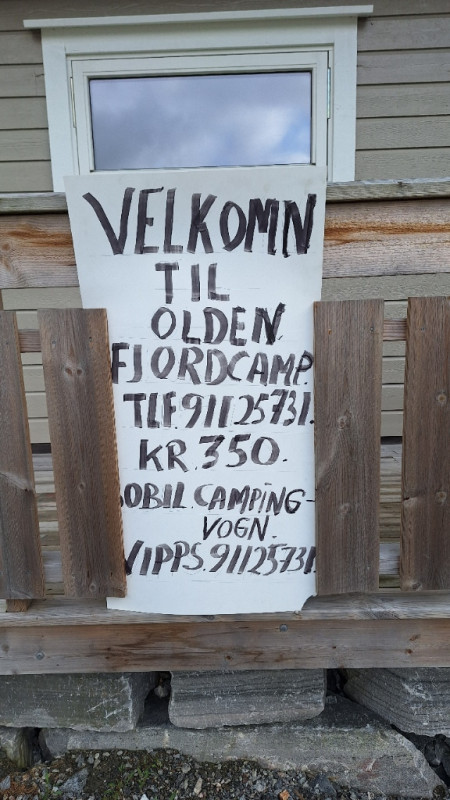 VELKOMN
TIL
OLDEN.
FJORDCAMP.
TLF. 91125731.
KR. 350.
BOBIL. CAMPING-
VOGN.
VIPPS. 91125731